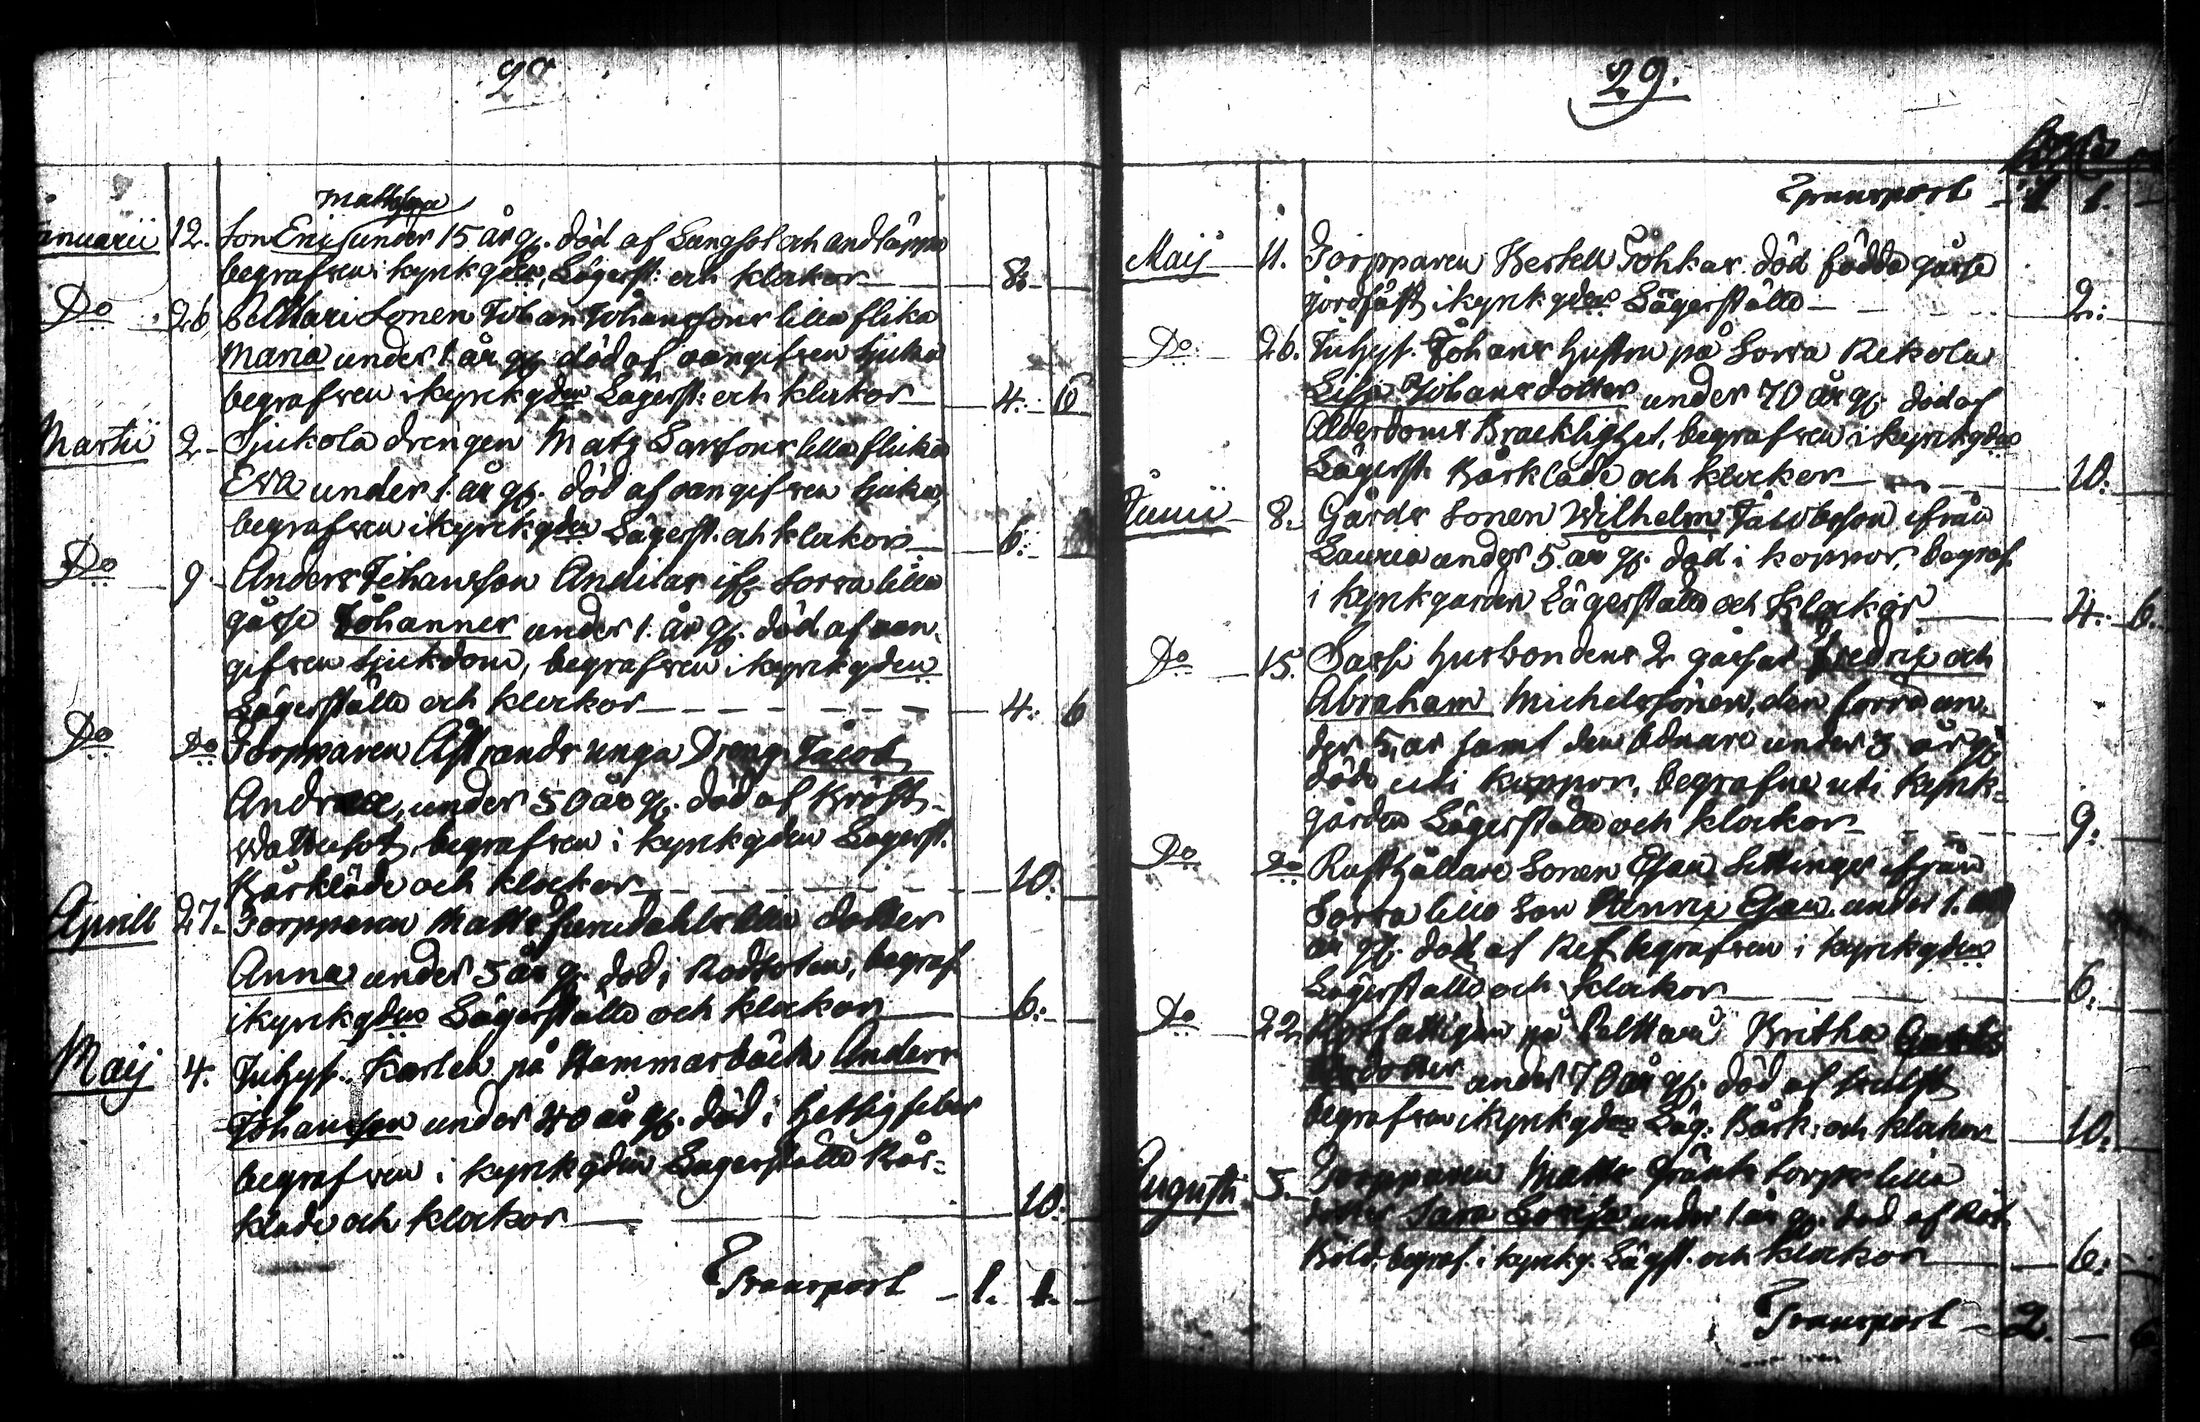 28.
Mattsson
Januarii 12. Son Eric under 15 år g. död af Lungsot och andtäppa
begrafven i kyrkgden, Lägerst. och klockor 8.
Do 26 Palttari Sonen Johan Johanssons lilla flika
Maria under 1. år g. död af oangifven sjuka
begrafven i kyrkgden Lägerst: och klockor 4. 6
Martii 2. Sjukola drengen Matts Larssons lilla flicka
Eva under 1. år g. död af oangifven sjuka,
begrafven i kyrkgden Lägerst. och klockor 6.
Do 9 Anders Johansson Andilas ifr. Sorra lilla
gåsse Johannes under 1. år g. död af oan-
gifven sjukdom, begrafven i kyrkgden
Lägerställe och klockor 4. 6
Do Do Torpparen Åstrands unga Dreng Jacob
Andreæ, under 50 år g. död af Bröst-
wattusot, begrafven i kyrkgden Lägerst.
Bårkläde och klockor 10.
Aprill 27. Torpparen Matts lilla dotter
Anna under 5 år g. död i Rödsoten, begraf.
i kyrkgden Lägerställe och klockor 6.
Maij 4. Inhys. Karlen på Hammarbacka Anders
Johansson under 40 år g. död i hettig feber
begrafven i kyrkgden Lägerställe Bår-
kläde och klockor 10.
Transport 1. 1.
29.
Transport 1 1.
Maij 11. Torpparen Bertell Tohkas död födde gåsse
jordfäst i kyrkgden Lägerställe 2.
Do 26. Inhys. Johans hustru på Sorra Rekola
Lisa Johansdotter under 70 år g. död af
Ålderdoms Bräcklighet, begrafven i kyrkgden
Lägerst. Bårkläde och klockor 10.
Junii 8. Gårds Sonen Wilhelm Jacobsson ifrån
Lauria under 5. år g. död i koppor, begraf.
i kyrkgården Lägerställe och klockor 4. 6.
Do 15. Sassi husbondens 2 gåssar Fredric och
Abraham Michelssöner, den förra un-
der 5, år samt den ednare under 3 år g.
döde uti koppor, begrafne uti kyrk-
gården Lägerställe och klockor 9.
Do Do Rusthållare Sonen Esau Settings ifrån
Sorra lilla Son Henric Esau under 1.
år g. död af Ref begrafven i kyrkgden
Lägerställe och klockor 6.
Do 22. Rotfattigen på Palttari Britha
dotter under 70 år g. död af
begrafven i kyrkgden Läg. Bårk. och klockor 10.
Augusti 3. Torpparen Matts Gränts torps lilla
dotter Sara Lovisa under 1 år g. död af Röt.
Böld, begraf. i kyrkg. Lägst. och klockor 6.
Transport 2. 6.